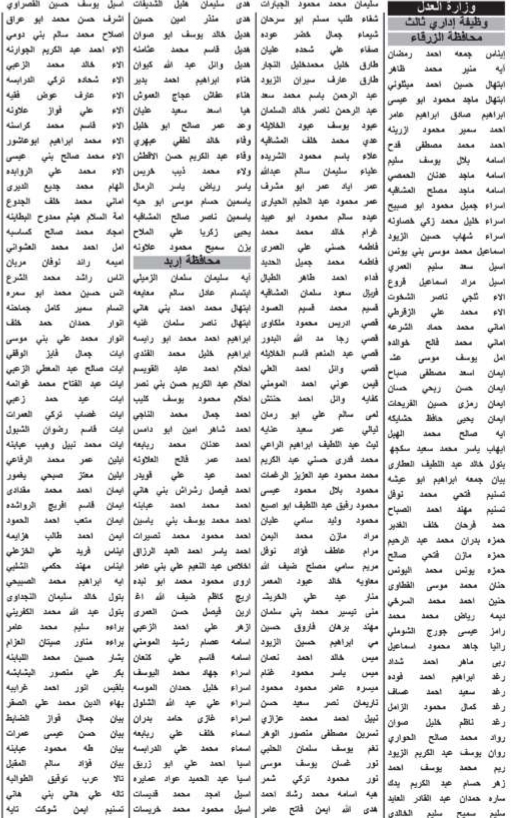 وزارة العدل
وظيفة إداري ثالث
محافظة الزرقاء
ايناس جمعه احمد رمضان
آيه منير محمد ظاهر
ابتهال حسين احمد ميثلوني
ابتهال ماجد محمود ابو عيسى
ابراهيم صادق ابراهيم عامر
احمد سمير محمود ازرينه
احمد محمد مصطفى قدح
اسامه بلال يوسف سليم
اسامه ماجد عدنان الحمصي
اسامه ماجد مصلح المشاقبه
اسراء جميل محمود ابو صبيح
اسراء خليل محمد زكي خصاونه
اسراء شهاب حسين الزيود
اسماعيل محمد موسى بني يونس
اسيل سعد سليم العمري
اسيل مراد اسماعيل قروع
الاء ثلجي ناصر الشخوت
الاء محمد علي الزقرطي
اماني محمد حماد الشرعه
اماني محمد فالح خوالده
امل يوسف موسى
ايمان اسعد مصطفى صباح
ايمان حسن ربحي حسان
ايمان رمزي حسين الفريحات
ايمان يحيى حافظ حشايكه
ايه صالح محمد الهبل
ايهاب ياسر محمد سعيد سكجها
بتول خالد عبد اللطيف العطاري
بيان جمعه ابراهيم ابو عيشه
تسنيم فتحي محمد نوفل
تسنيم مهند احمد الصباح
حمد فرحان خلف الغدير
حمزه بدران محمد عبد الرحيم
حمزه مازن فتحي صالح
حمزه يونس محمد اليونس
حنان محمد موسى القطاوي
حنين احمد محمد السرخي
ديمه رياض محمد محمد
رامز عيسى جورج الشوملي
رانيا جاهد محمود اسماعيل
ربى ماهر احمد شداد
رغد ابراهيم احمد فوده
رغد سعيد احمد عساف
رغد كمال محمود الزامل
رغد ناظم خليل صوان
رواد محمد صالح الحواري
روان يوسف عبد الكريم الزيود
ريم محمد يوسف احمد
زهر حسام عبد الكريم بدك
ساره حمدان عبد القادر العابد
سليم سميح سليم الخالدي
سليمان محمد محمود الجبارات
شفاء طلب مسلم ابو سرحان
شيماء جمال خضر عوده
صفاء علي شحده عليان
طارق خليل محمدخليل النجار
طارق عارف سيران الزيود
عبد الرحمن باسم محمد سعد
عبد الرحمن ناصر خالد السلمان
عبود يوسف عبود الخلايله
عدي محمد خلف المشاقبه
علاء باسم محمود الشريده
علياء سليمان سالم عبدالله
عمر اياد عمر ابو مشرف
عمر محمود عبد الحليم الحياري
عيده سالم محمود ابو عبيد
غرام خالد محمد محمد
فاطمه حسني علي العمري
فاطمه محمد جميل الحديد
فداء احمد طاهر الطبال
فريال سعود سلمان المشاقبه
قسيم محمد قسيم العسود
قصي ادريس محمود ملكاوي
قصي رجا مد الله البدور
قصي عبد المنعم قاسم الخلايله
قصي وائل احمد العلي
قيس عوني احمد المومني
كفايه وائل احمد حنتش
لمى سالم علي ابو رمان
ليالي عمر سعيد عنايه
ليث عبد اللطيف ابراهيم الراعي
محمد قدري حسني عبد الكريم
محمد محمود عبد العزيز الرغمات
محمود بلال محمود عيسى
محمود رفيق عبد اللطيف ابو اصبع
محمود وليد سامي عليان
مراد مازن محمد اليمن
مرام عاطف فؤاد نوفل
مريم سامي مصلح ضيف الله
معاويه خالد عبود المعمر
منار عيد علي الخريشه
منى تيسير محمد بني سلمان
مهند برهان فاروق حسين
مي ابراهيم حسين الزيود
ميس خالد احمد نعمان
ميس ياسر محمود غنام
ميسره عامر محمود محمود
ناريمان نصر سعيد حسن
نبيل احمد محمد عزازي
نسرين مصطفى منصور الوهر
نغم يوسف سلمان الحلبي
نور غسان يوسف موسى
نور محمود تركي شمر
هبه اسامه محمد رشاد احمد
هدى الله ايمن فاتح عامر
هدى سليمان هليل الشديفات
هدى منذر امين حسين
هديل خالد يوسف ابو صوان
هديل قاسم محمد عثامنه
هديل وائل عبد الله كيوان
هناء ابراهيم احمد بدير
هناء عفاش عجاج العموش
هيا اسعد سعيد عليان
وعد عمر صالح ابو خليل
وفاء خالد لطفي عبهري
وفاء عبد الكريم حسن الاقطش
ولاء محمد ذيب خريس
ياسر رياض ياسر الرمال
ياسمين حسام موسى ابو حيه
ياسمين ناصر صالح المشاقبه
يحيى زكريا علي الملاح
يزن سميح محمود علاونه
محافظة إربد
آيه سليمان سلمان الزميلي
ابتسام عادل سالم معايعه
ابتهال محمد احمد بني هاني
ابتهال ناصر سلمان غنيه
ابراهيم احمد محمد ابو رايسه
ابراهيم خليل محمد الفندي
احلام احمد عايد القويسم
احلام عبد الكريم حسن بني نصر
احلام محمود يوسف كليب
احمد جمال محمد الناجي
احمد شاهر امين ابو دامس
احمد عدنان محمد ربايعه
احمد عمر فالح العلاونه
احمد عيد علي قويدر
احمد فيصل رشراش بني هاني
احمد محمد احمد عبابنه
احمد محمد يوسف بني ياسين
احمد محمود محمد نصيرات
احمد ياسر احمد العبد الرزاق
اخلاص عبد النعيم علي بني عامر
اروى محمود محمد ابو لبده
اريج كاظم ضيف الله اغا
ارين فيصل حسن العمري
ازهر علي احمد الزعبي
اسامه عصام رشيد المومني
اسامه قاسم علي كنعان
اسراء جهاد محمد اليوسف
اسراء خليل حمدان الموسه
اسراء علي عبد الله الشلول
اسراء غازي حامد بدران
اسماء خلف علي ربايعه
اسماء محمد علي الدرابسه
اسيا احمد علي ابو زريق
اسيا عبد الحميد عواد عمايره
اسيل امجد محمد قديسات
اسيل محمود محمد خريسات
اسيل يوسف حسين القصراوي
اشرف حسن محمد بو عواد
اصلاح محمد سالم بني دومي
الاء احمد عبد الكريم الجوارنه
الاء خالد محمد الزعبي
الاء شحاده تركي الدرابسه
الاء عارف عوض فقيه
الاء علي فواز علاونه
الاء قاسم محمد كراسنه
الاء محمد ابراهيم ابوعاشور
الاء محمد صالح بني عيسى
الاء محمد علي الروابده
الهام محمد جديع الديري
اماني محمد خلف الجدوع
امة السلام هيثم ممدوح البطاينه
امجاد محمد صالح كساسبه
امل احمد محمد العشواني
اميمه رائد نوفان مريان
اناس راشد محمد الشرع
انس حسين محمد ابو سمره
انسام سمير كامل جماحنه
انوار حمدان حمد خلف
انوار محمد علي بني موسى
ايات جمال فايز الوقفي
ايات صالح عبد المعطي الزعبي
ايات عبد الفتاح محمد غوانمه
ايات عيد حمد زعبي
ايات غصاب تركي العمرات
ايات قاسم رضوان الشبول
ايات محمد نبيل وهيب عبابنه
ايلين عمر محمد الرفاعي
ايلين معتز صبحي يغمور
ايمان احمد محمد مقدادي
ايمان قاسم افريج الرواشده
ايمان متعب احمد الحمود
ايمن احمد طالب هزايمه
ايناس فريد علي الخزعلي
ايناس مهند حكمي الشلبي
ايه ابراهيم محمد الصبيحي
بتول خالد سليمان النجداوي
بتول عبد الله محمد الكفريني
براءه سليم محمد عامر
براءه مناور صيتان العزام
بشار حسين محمد اللبابنه
بكر علي منصور البشابشه
بلقيس انور احمد غرايبه
بهاء الدين محمد علي الصقر
بيان جمال فواز الضابط
بيان حسن عيسى عمرات
بيان طه محمود عبابنه
بيان فؤاد سالم المقبل
تالا عرب توفيق الطوالبه
تاله علي هاني بني هاني
تسنيم ايمن شوكت تايه